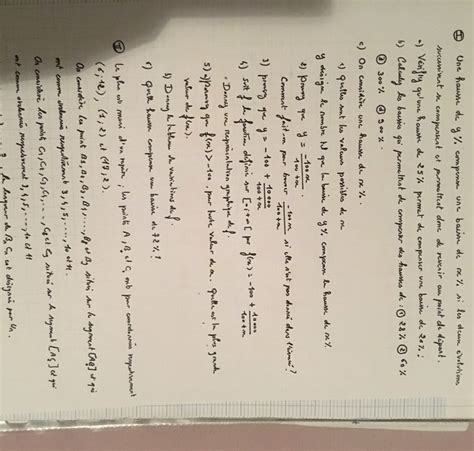 I Une hausse de y % compense une baisse de x % si les deux évolutions
successives se compensent et permettent donc de revenir au point de départ.
a) Vérifier qu'une hausse de 25 % permet de compenser une baisse de 20 % !
b) Calculer les baisses qui permettent de compenser des hausses de : ① 28 % ② 60 %
③ 300 % ④ 900 %.
c) On considère une hausse de x %.
y désigne le nombre tel que la baisse de y % compense la hausse de x %
1) Quelles sont les valeurs possibles de x
2) prouver que y = -100x / 100+x
Comment fait-on pour trouver -100x / 100+x si elle n'est pas donnée dans l'énoncé ?
3) prouver que y = -100 + 10000 / 100+x
4) soit f la fonction définie sur [0,+∞[ par f(x) = -100 + 10000 / 100+x
. Donner une représentation graphique de f.
5) a) prouver que f(x) > -100 pour toute valeur de x. quelle est la plus grande
valeur de f(x).
b) Donner le tableau de variations de f
c) Quelle hausse compense une baisse de 32 % ?
II Le plan est muni d'un repère ; les points A, B et C ont pour coordonnées respectivement
(1,2) et
On considère les points B2, B3, B4, B5, ..., et B9 situés sur le segment [AB] et qui
ont comme ordonnées respectivement 3, 4, 5, ..., 10 et 11.
On considère les points C2, C3, C4, C5, ..., C8 et C9 situés sur le segment [AC] et qui
ont comme ordonnées respectivement 3, 4, 5, ..., 10 et 11
la longueur de est désignée par